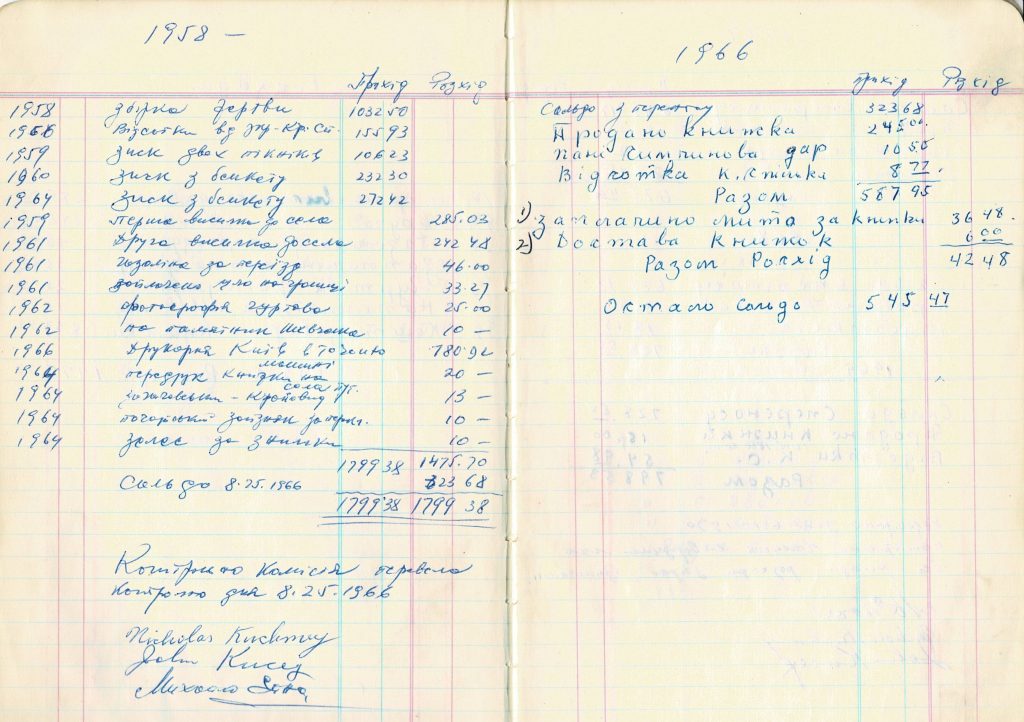 1958 —
Прихід Розхід
1958 Збірка жертви 103250
1966 Відсотки від Укр-Кр.Сп. 15593
1959 Зиск двох пікніків 10623
1960 Зиск з бенкету 23230
1964 Зиск з бенкету 27242
1959 Перша висилка до села 285.03
1961 Друга висилка до села 242 48
1961 газоліна за переїзд 46.00
1961 доплачено на границі 33-27
1962 фотографія гуртова 25.00
1962 на памятник Шевченка 10 —
1966 Друкарня Київ в Торонто 780.92
1964 передрук книжки на машині 20 —
1964 13 —
1964 10 —
1964 за знимки 10 —
1799 38 1475.70
Сальдо 8.25.1966 323 68
1799.38 1799 38
Контрольна Комісія перевела
контролю дня 8.25.1966
Nicholas
John
Михайло
1966
прихід Розхід
Сальдо з переносу 323 68
Продано книжка 245 00.
пані дар 10 50
Відсотка К. 8 77.
Разом 587 95
1) заплачино мита за книжки 36 48.
2) Достава Книжок 6 00
Разом Розхід 42 48
Остало сольдо 545 47